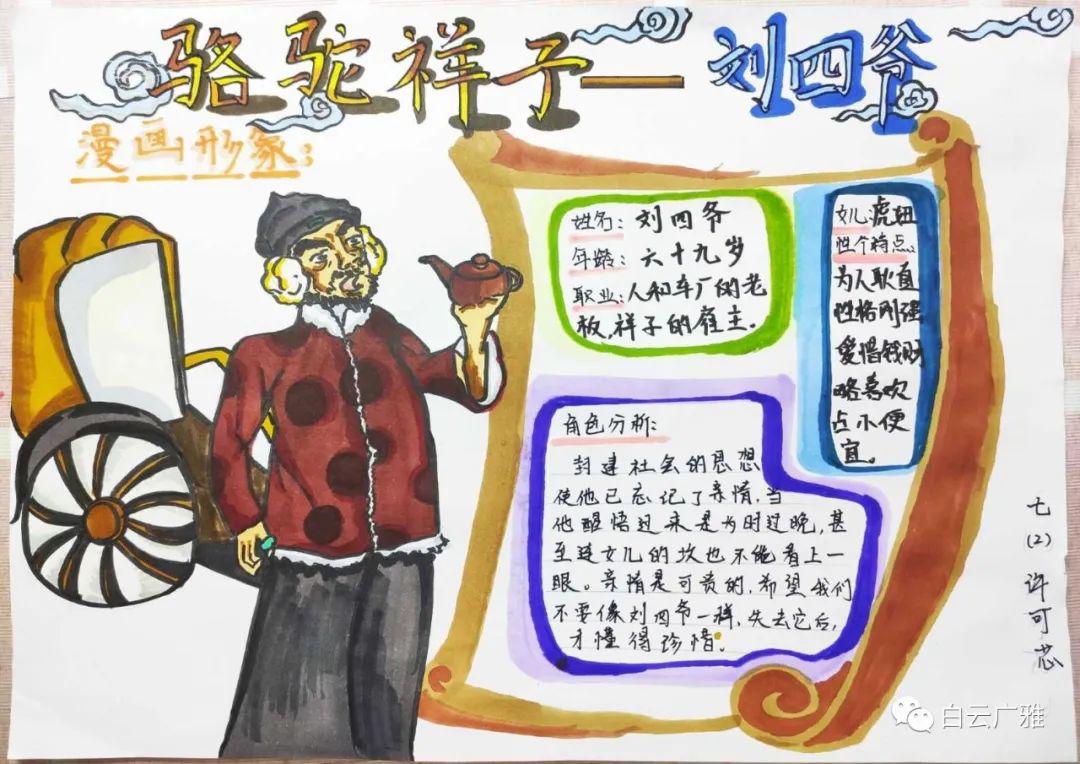 骆驼祥子—刘四爷
漫画形象:
姓名: 刘四爷
年龄: 六十九岁
职业: 人和车厂的老
板,祥子的雇主.
女儿:虎妞
性个特点:
为人耿直
性格刚强
爱惜钱财
略喜欢
占小便
宜。
角色分析:
封建社会的思想
使他已忘记了亲情,当
他醒悟过来是为时过晚,甚
至连女儿的坟也不能看上一
眼。亲情是可贵的,希望我们
不要像刘四爷一样,失去它后,
才懂得珍惜。
七(2)许可芯
白云广雅